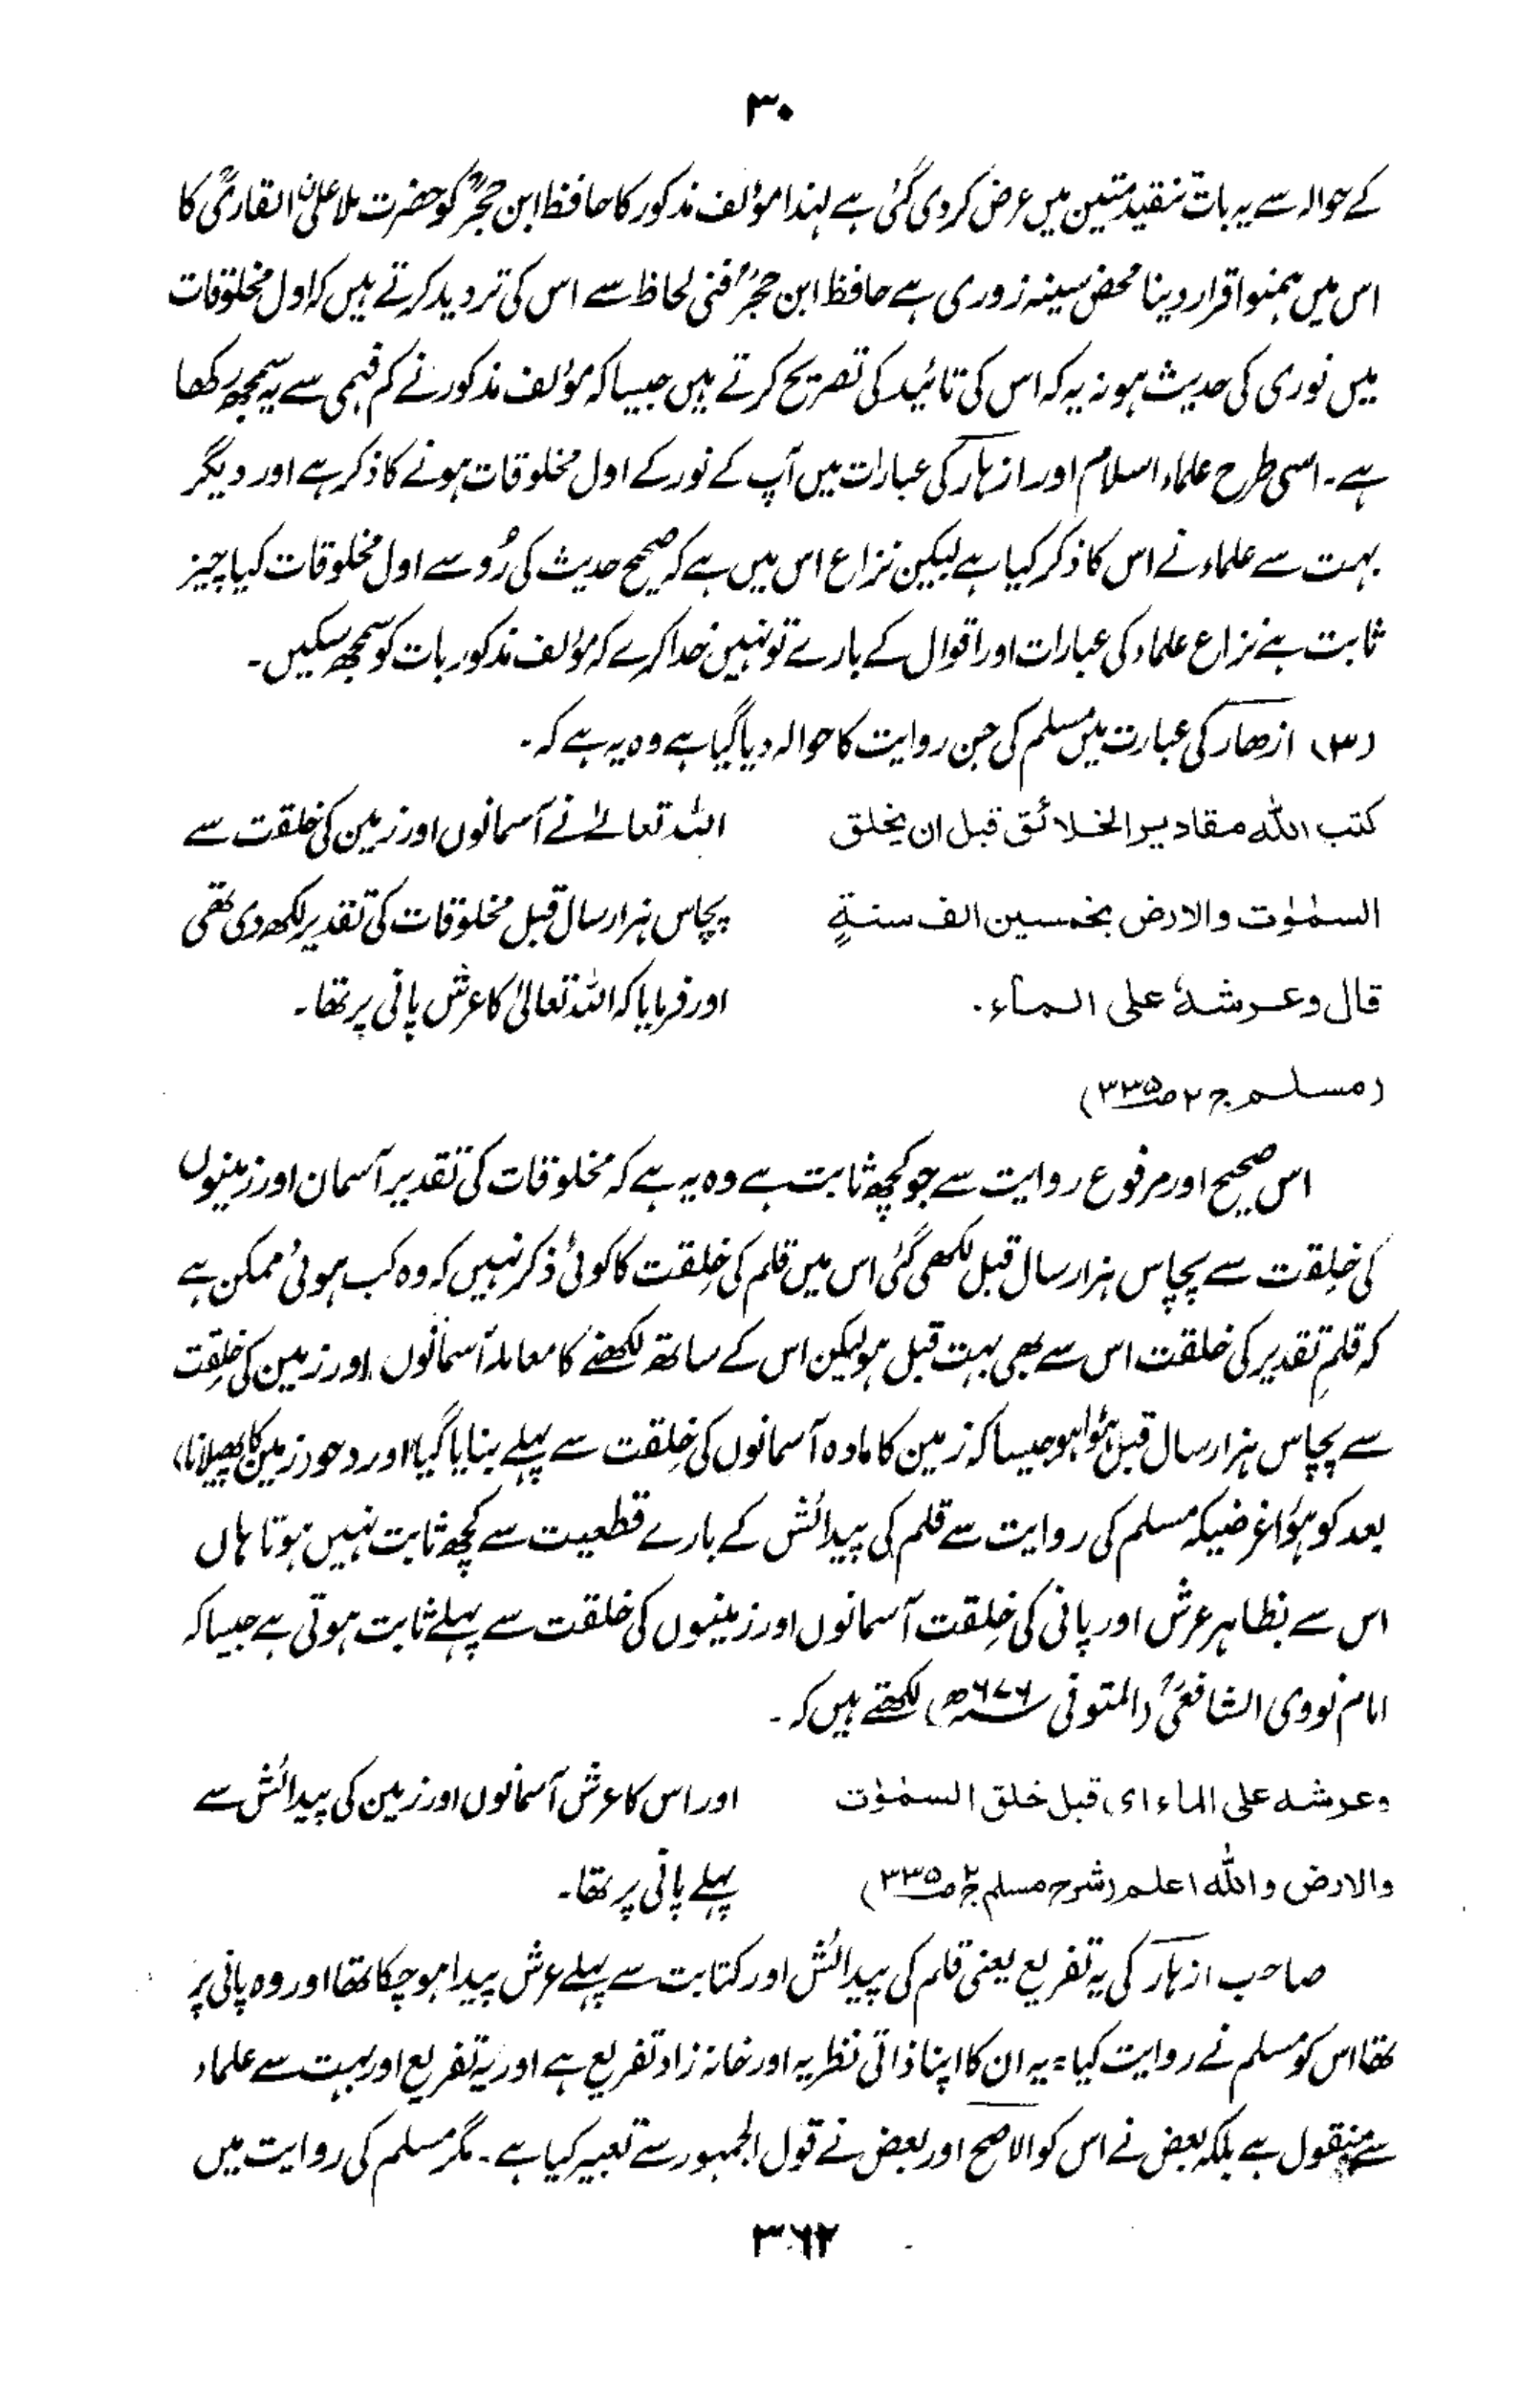 ۳۰
کے حوالہ سے یہ بات تنقید متین میں عرض کر دی گئی ہے لہٰذا مؤلف مذکور کا حافظ ابن حجرؒ کو حضرت ملا علی ن القاریؒ کا
اس میں ہمنوا قرار دینا محض سینہ زوری ہے حافظ ابن حجرؒ فنی لحاظ سے اس کی تردید کرتے ہیں کہ اول مخلوقات
میں نوری کی حدیث ہو نہ یہ کہ اس کی تائید کی تصریح کرتے ہیں جیسا کہ مؤلف مذکور نے کم فہمی سے یہ سمجھ رکھا
ہے۔ اسی طرح علماء اسلام اور ازہار کی عبارات میں آپ کے نور کے اول مخلوقات ہونے کا ذکر ہے اور دیگر
بہت سے علماء نے اس کا ذکر کیا ہے لیکن نزاع اس میں ہے کہ صحیح حدیث کی رُو سے اول مخلوقات کیا چیز
ثابت ہے نزاع علماء کی عبارات اور اقوال کے بارے تو نہیں خدا کرے کہ مؤلف مذکور بات کو سمجھ سکیں۔
(۳) ازھار کی عبارت میں مسلم کی جس روایت کا حوالہ دیا گیا ہے وہ یہ ہے کہ۔
کتب اللہ مقادیر الخلائق قبل ان یخلق
السمٰوٰت والارض بخمسین الف سنۃٍ
قال وعرشہٗ علی الماء۔
(مسلم ج ۲ ص ۳۳۵)
اللہ تعالےٰ نے آسمانوں اور زمین کی خلقت سے
پچاس ہزار سال قبل مخلوقات کی تقدیر لکھ دی تھی
اور فرمایا کہ اللہ تعالیٰ کا عرش پانی پر تھا۔
اس صحیح اور مرفوع روایت سے جو کچھ ثابت ہے وہ یہ ہے کہ مخلوقات کی تقدیر آسمان اور زمینوں
کی خلقت سے پچاس ہزار سال قبل لکھی گئی اس میں قلم کی خلقت کا کوئی ذکر نہیں کہ وہ کب ہوئی ممکن ہے
کہ قلمِ تقدیر کی خلقت اس سے بھی بہت قبل ہو لیکن اس کے ساتھ لکھنے کا معاملہ آسمانوں اور زمین کی خلقت
سے پچاس ہزار سال قبل ہؤا ہو جیسا کہ زمین کا مادہ آسمانوں کی خلقت سے پہلے بنایا گیا اور دحو (زمین کا پھیلانا)
بعد کو ہؤا غرضیکہ مسلم کی روایت سے قلم کی پیدائش کے بارے قطعیت سے کچھ ثابت نہیں ہوتا ہاں
اس سے بظاہر عرش اور پانی کی خلقت آسمانوں اور زمینوں کی خلقت سے پہلے ثابت ہوتی ہے جیسا کہ
امام نووی الشافعیؒ (المتوفی ۶۷۶ھ) لکھتے ہیں کہ۔
وعرشہ علی الماء ای قبل خلق السمٰوٰت
والارض واللہ اعلم (شرح مسلم ج ۲ ص ۳۳۵)
اور اس کا عرش آسمانوں اور زمین کی پیدائش سے
پہلے پانی پر تھا۔
صاحب ازہار کی یہ تفریع یعنی قلم کی پیدائش اور کتابت سے پہلے عرش پیدا ہو چکا تھا اور وہ پانی پر
تھا اس کو مسلم نے روایت کیا = یہ ان کا اپنا ذاتی نظریہ اور خانہ زاد تفریع ہے اور یہ تفریع اور بہت سے علماء
سے منقول ہے بلکہ بعض نے اس کو الاصح اور بعض نے قول الجمہور سے تعبیر کیا ہے۔ مگر مسلم کی روایت میں
۳۶۲